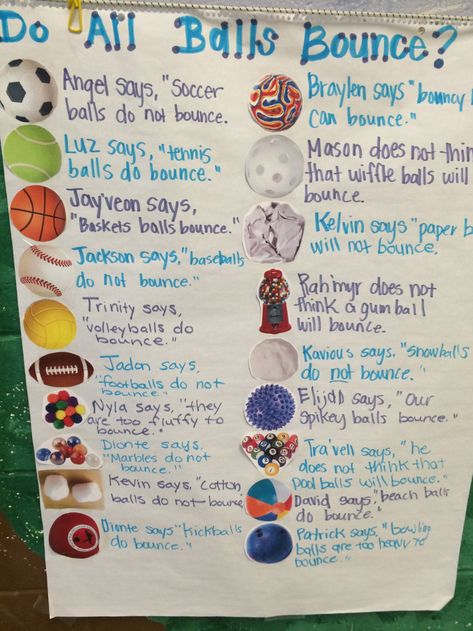 Do All Balls Bounce?
Angel says, "Soccer
balls do not bounce.
Luz says, "tennis
balls do bounce."
Jay'veon says,
"Baskets balls bounce."
Jackson says, "baseballs
do not bounce."
Trinity says,
"volleyballs do
bounce."
Jadon says,
"footballs do not
bounce."
Nyla says, "they
are too fluffy to
bounce."
Dionte says,
"Marbles do not
bounce."
Kevin says, "Cotton
balls do not bounce
Dionte says "Kickballs
do bounce."
Braylen says "bouncy
can bounce."
Mason does not thin
that wiffle balls will
bounce.
Kelvin says "paper b
will not bounce.
Rah'myr does not
think a gumball
will bounce.
Kavious says, "Snowballs
do not bounce."
says, "Our
spikey balls bounce."
Tra'veh says, "he
does not think that
pool balls will bounce."
David says, "beach balls
do bounce."
Patrick says, "bowling
balls are too heavy to
bounce."